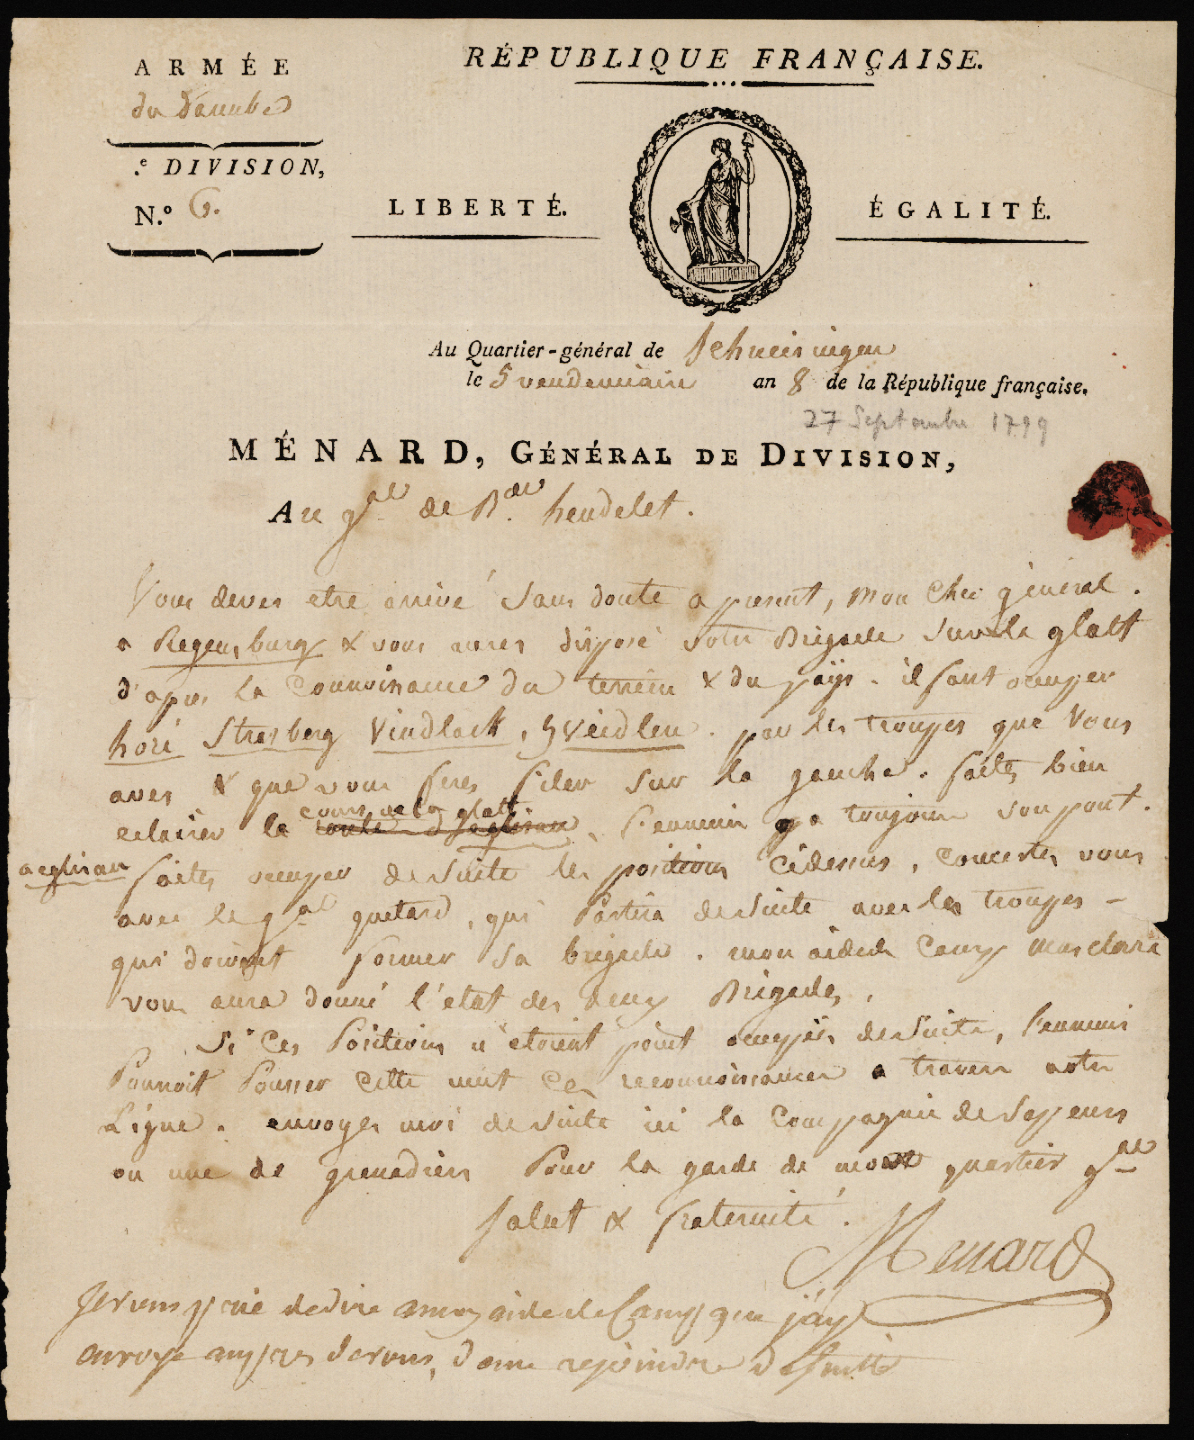 RÉPUBLIQUE FRANÇAISE.
ARMÉE
du Danube
.e DIVISION,
N.º 6.
LIBERTÉ.
ÉGALITÉ.
Au Quartier-général de Schneisingen
le 5 vendemiaire an 8 de la République française.
27 Septembre 1799
MÉNARD, GÉNÉRAL DE DIVISION,
Au gal de Bde heudelet.
Vous deves etre arrivé sans doute a present, mon cher général.
a Regensburg & vous aures disposé votre Brigade sur la glatt
d'après la connoisance du terrein & du païs. il faut occuper
hori Strasberg Vindlack, Sveidlen. par les troupes que vous
aves & que vous feres filer sur la gauche. faites bien
eclairer le cours de la glatt route d'eglisau, l'ennemi a toujours son pont.
a eglisau faites occuper de suite les positions cidessus, concertes vous
avec le gal quetard, qui Partira de suite avec les troupes -
qui doivent former sa brigade. mon aide de Camp Masclara
vous aura donné l'etat des deux Brigades.
Si Ces Positions n'etoient point occupées de suite, l'ennemi
Pourroit Pousser cette nuit des reconnoissances a travers notre
Ligne. envoyes moi de suite ici la Compagnie de Sapeurs
ou une de grenadiers Pour la garde de mon quartier gal
Salut & fraternité.
Menard
Je vous prie de dire a mon aide de Camp que j'ay
envoyé aupres de vous, de me rejoindre de suitte